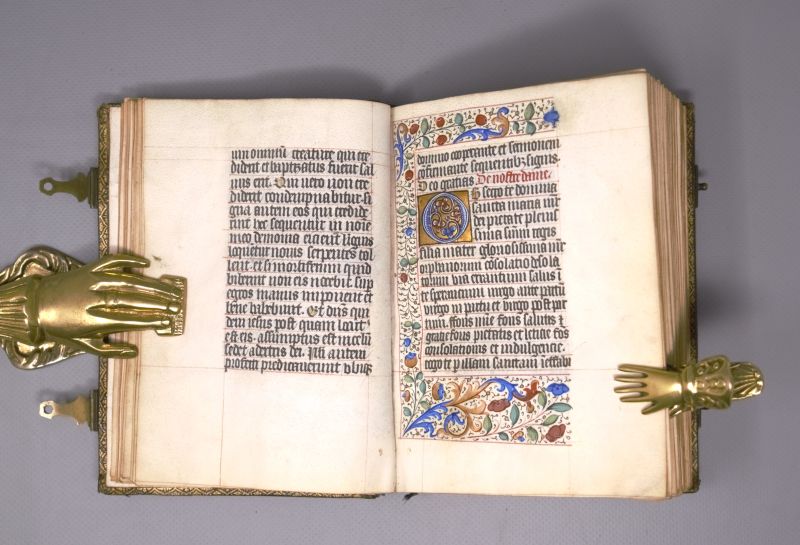 omniū creature qui cre
diderit et baptizatus fuerit sal
uus erit. Qui uero non cre
diderit condempnabitur. Si
gna autem eos qui credide
rint hec sequentur in noīe
meo demonia eicient linguis
loquentur nouis serpentes tol
lent. et si mortiferum quid
biberint non eis nocebit sup
egros manus imponent et
bene habebunt. Et dns qui
dem iesus post quam locut
est eis. assumptus est in celum
sedet adextris dei. Illi autem
profecti predicauerunt vbiqꝫ
domino cooperante et sermonem
confirmante sequentibꝫ signis.
Deo gratias. De nostre dame.
Obsecro te domina
sancta maria mr̄
dei pietate plenis
sima sūmi regis
filia mater gloriosissima mr̄
orphanorum cōsolatio desola
torum via errantium salus ī
te sperantium uirgo ante partū
uirgo in partu et uirgo post par
tum. fons mīe fons salutis ⁊
gratie fons pietatis et leticie fons
consolationis et indulgencie.
rogo te p illam sanctam ineffabi